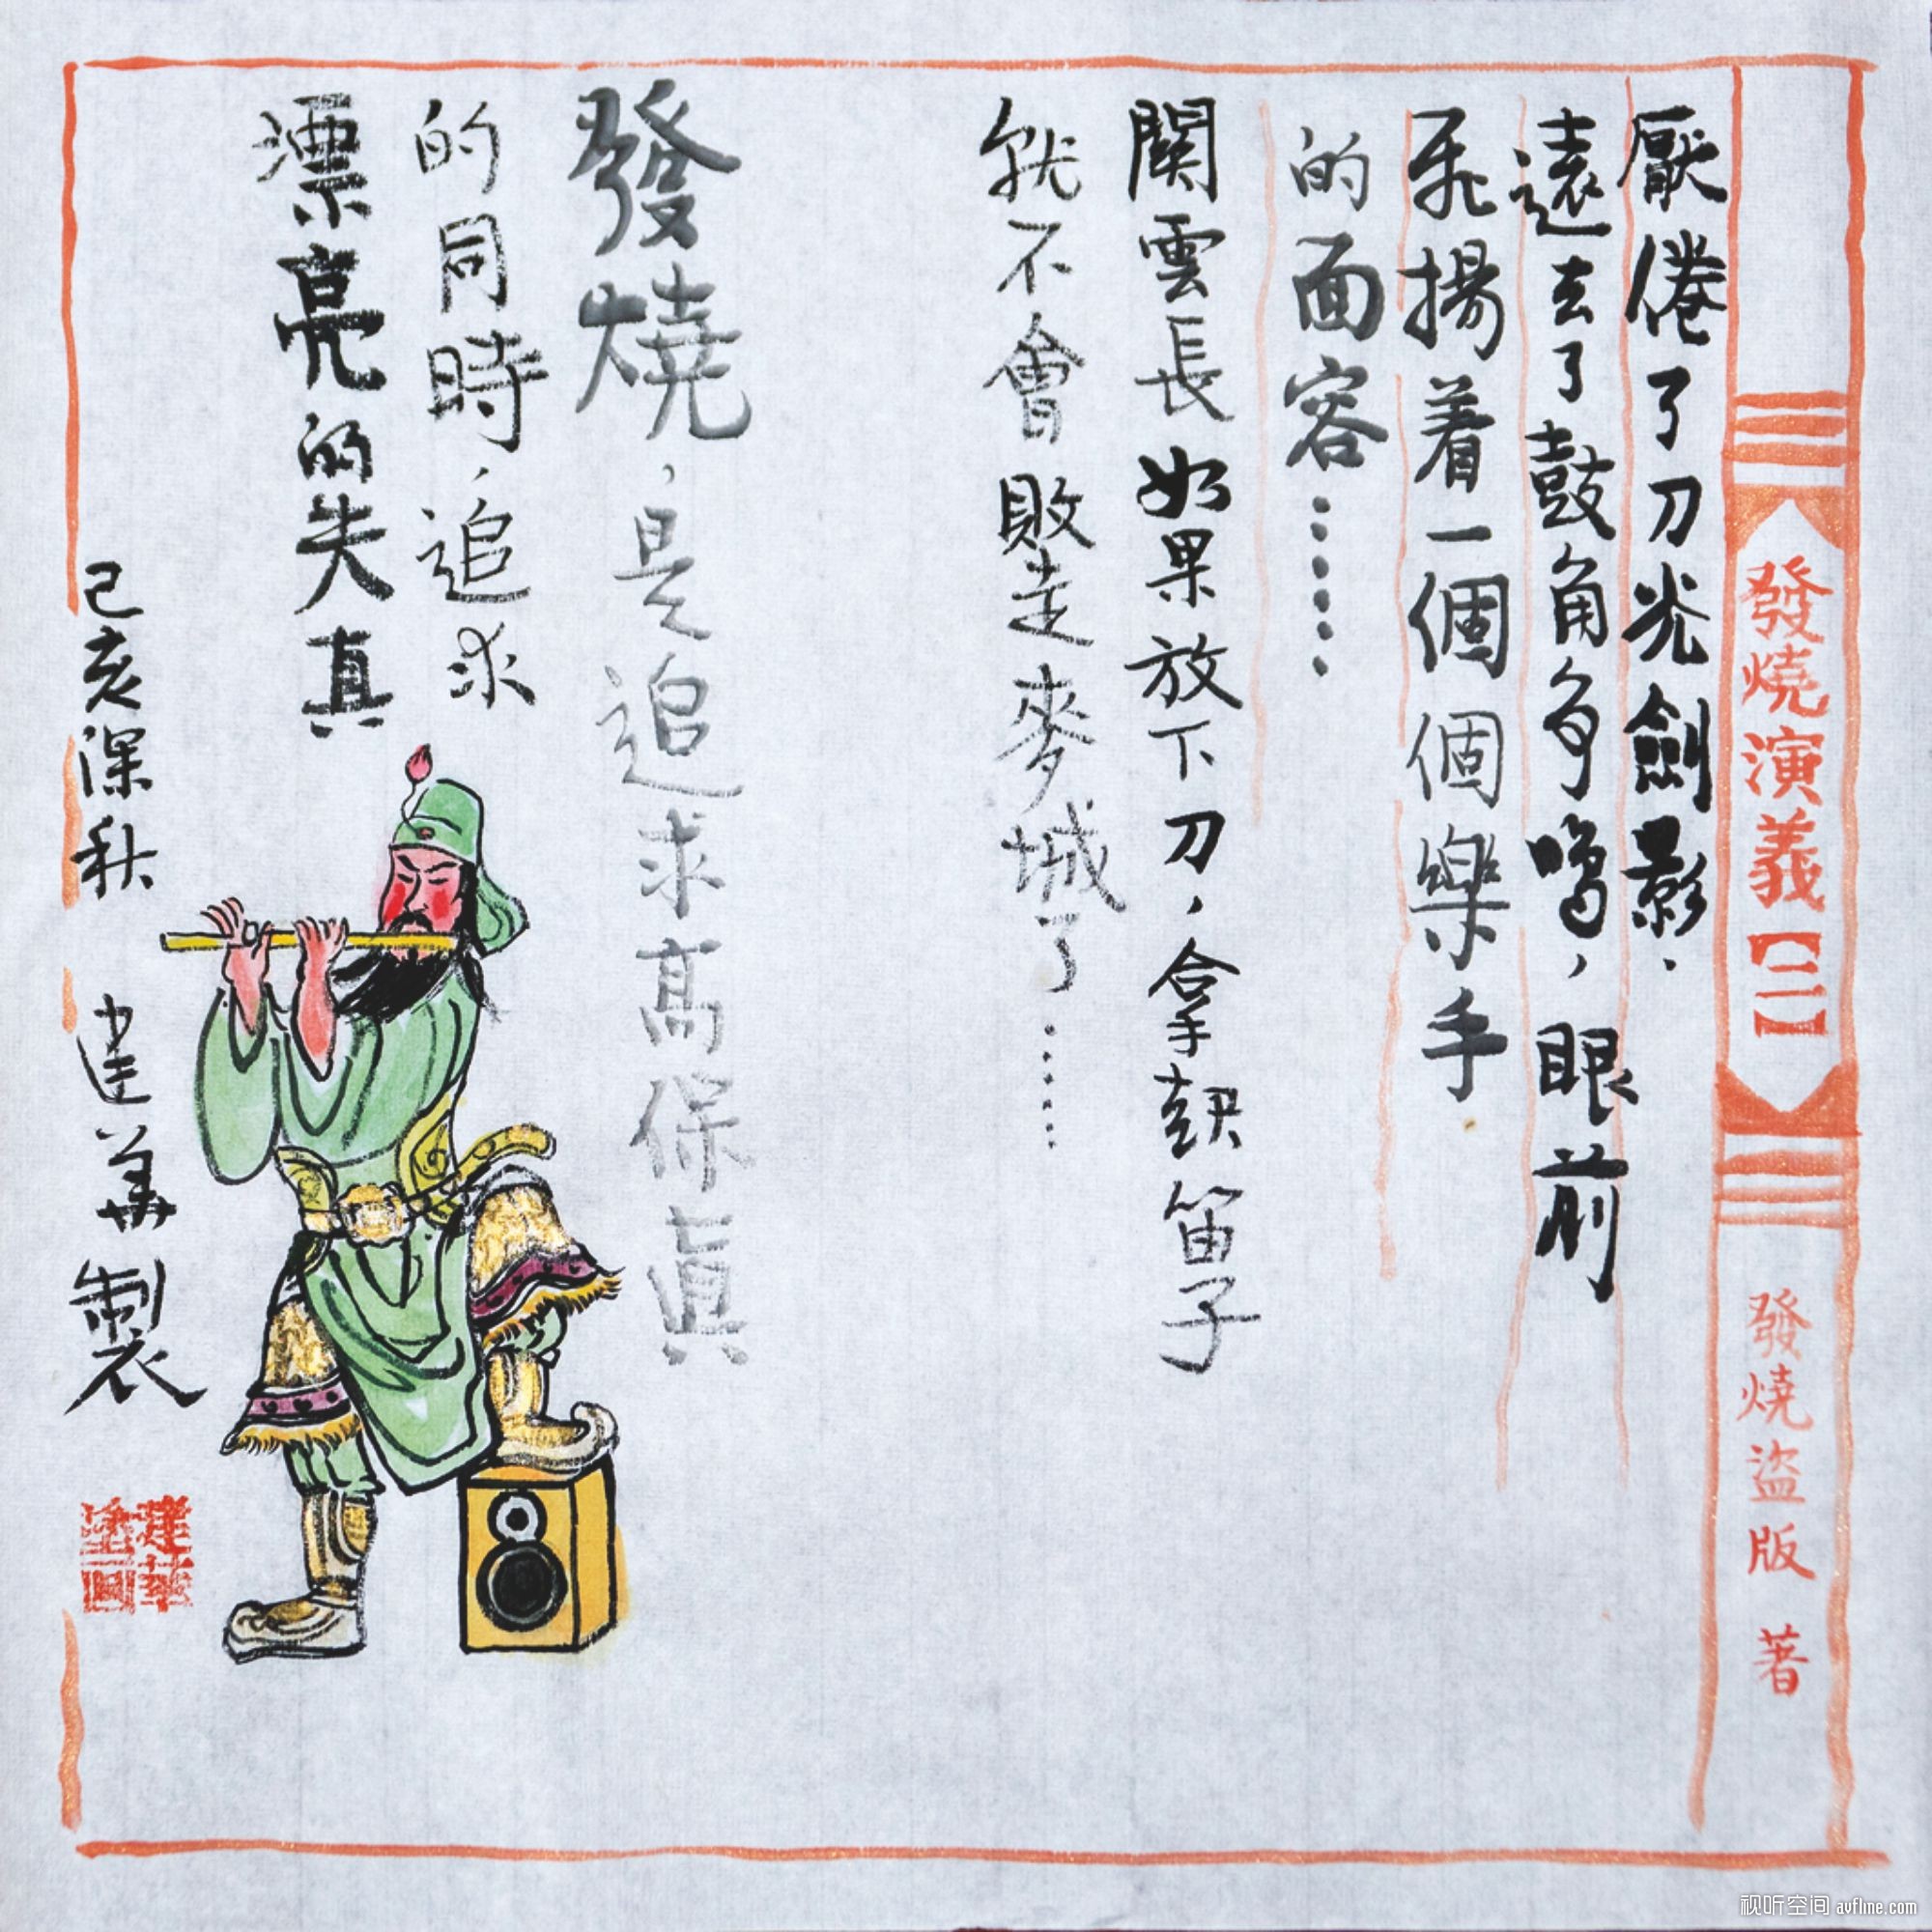 發燒演義【二】
發燒盜版 著
厭倦了刀光劍影.
遠去了鼓角争鳴,眼前
飛揚着一個個樂手
的面容……
關雲長如果放下刀,拿起笛子
就不會敗走麥城了……
發燒,是追求高保真
的同時,追求
漂亮的失真
己亥深秋 建華製
建華
塗回
视听空间 avfline.com